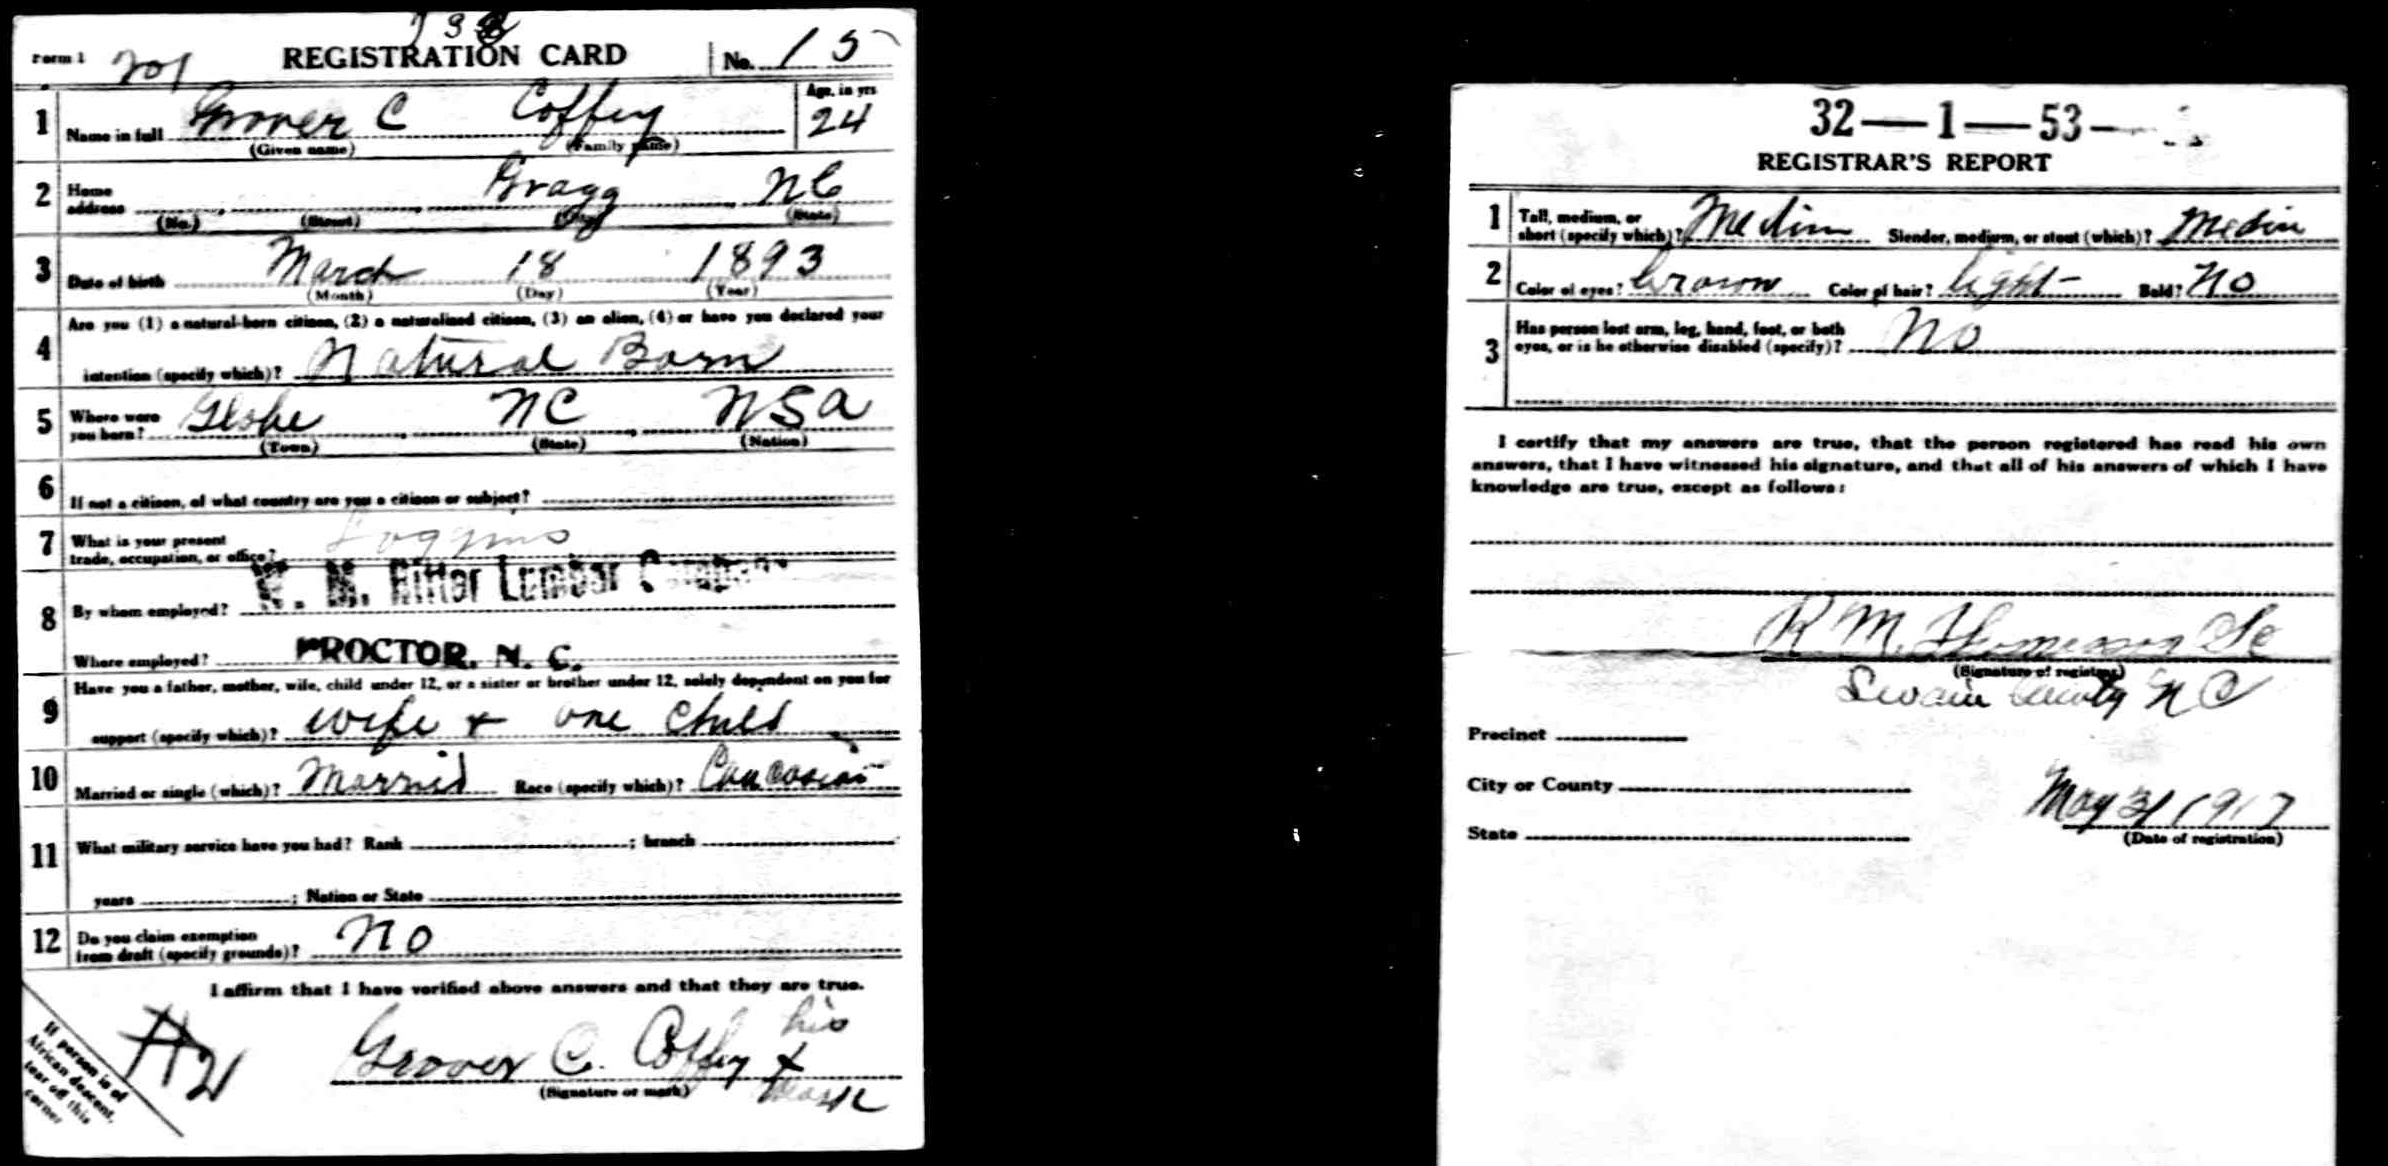 Form 1 201 REGISTRATION CARD No. 15
1 Name in full Grover C Coffey Age, in yrs 24
(Given name) (Family name)
2 Home address Gragg NC
(No.) (Street) (City) (State)
3 Date of birth March 18 1893
(Month) (Day) (Year)
Are you (1) a natural-born citizen, (2) a naturalized citizen, (3) an alien, (4) or have you declared your
4 intention (specify which)? Natural Born
5 Where were you born? Globe NC USA
(Town) (State) (Nation)
6 If not a citizen, of what country are you a citizen or subject?
7 What is your present
trade, occupation, or office?
8 By whom employed? W. M. Ritter Lumber Company
Where employed? PROCTOR, N. C.
Have you a father, mother, wife, child under 12, or a sister or brother under 12, solely dependent on you for
9 support (specify which)? wife + one child
10 Married or single (which)? Married Race (specify which)? Caucasian
11 What military service have you had? Rank ; branch
years ; Nation or State
12 Do you claim exemption
from draft (specify grounds)? No
I affirm that I have verified above answers and that they are true.
Grover C. Coffey his x mark
(Signature or mark)
If person is of
African descent,
tear off this
corner
32—1—53—
REGISTRAR'S REPORT
1 Tall, medium, or
short (specify which)? Medim Slender, medium, or stout (which)? Medin
2 Color of eyes? brown Color of hair? light Bald? No
3 Has person lost arm, leg, hand, foot, or both
eyes, or is he otherwise disabled (specify)? No
I certify that my answers are true, that the person registered has read his own
answers, that I have witnessed his signature, and that all of his answers of which I have
knowledge are true, except as follows:
R M. Thomason
(Signature of registrar)
Swain County N C
Precinct
City or County
May 31 1917
State (Date of registration)